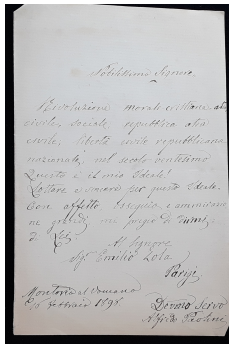 Nobilissimo Signore
Rivoluzione morale cristiana,
civile, sociale repubblica
civile, libertà civile repubblicana
nazionale, nel secolo ventesimo
Questo è il mio Ideale!
Lottare e vincere per questo Ideale.
Con affetto, ossequio e ammirazio
ne grande mi pregio di
di Lei
Al Signore
Sigr. Emilio Zola
Parigi
Montorio al Vomano
Febbraio 1898
Devoto Servo
Alfredo